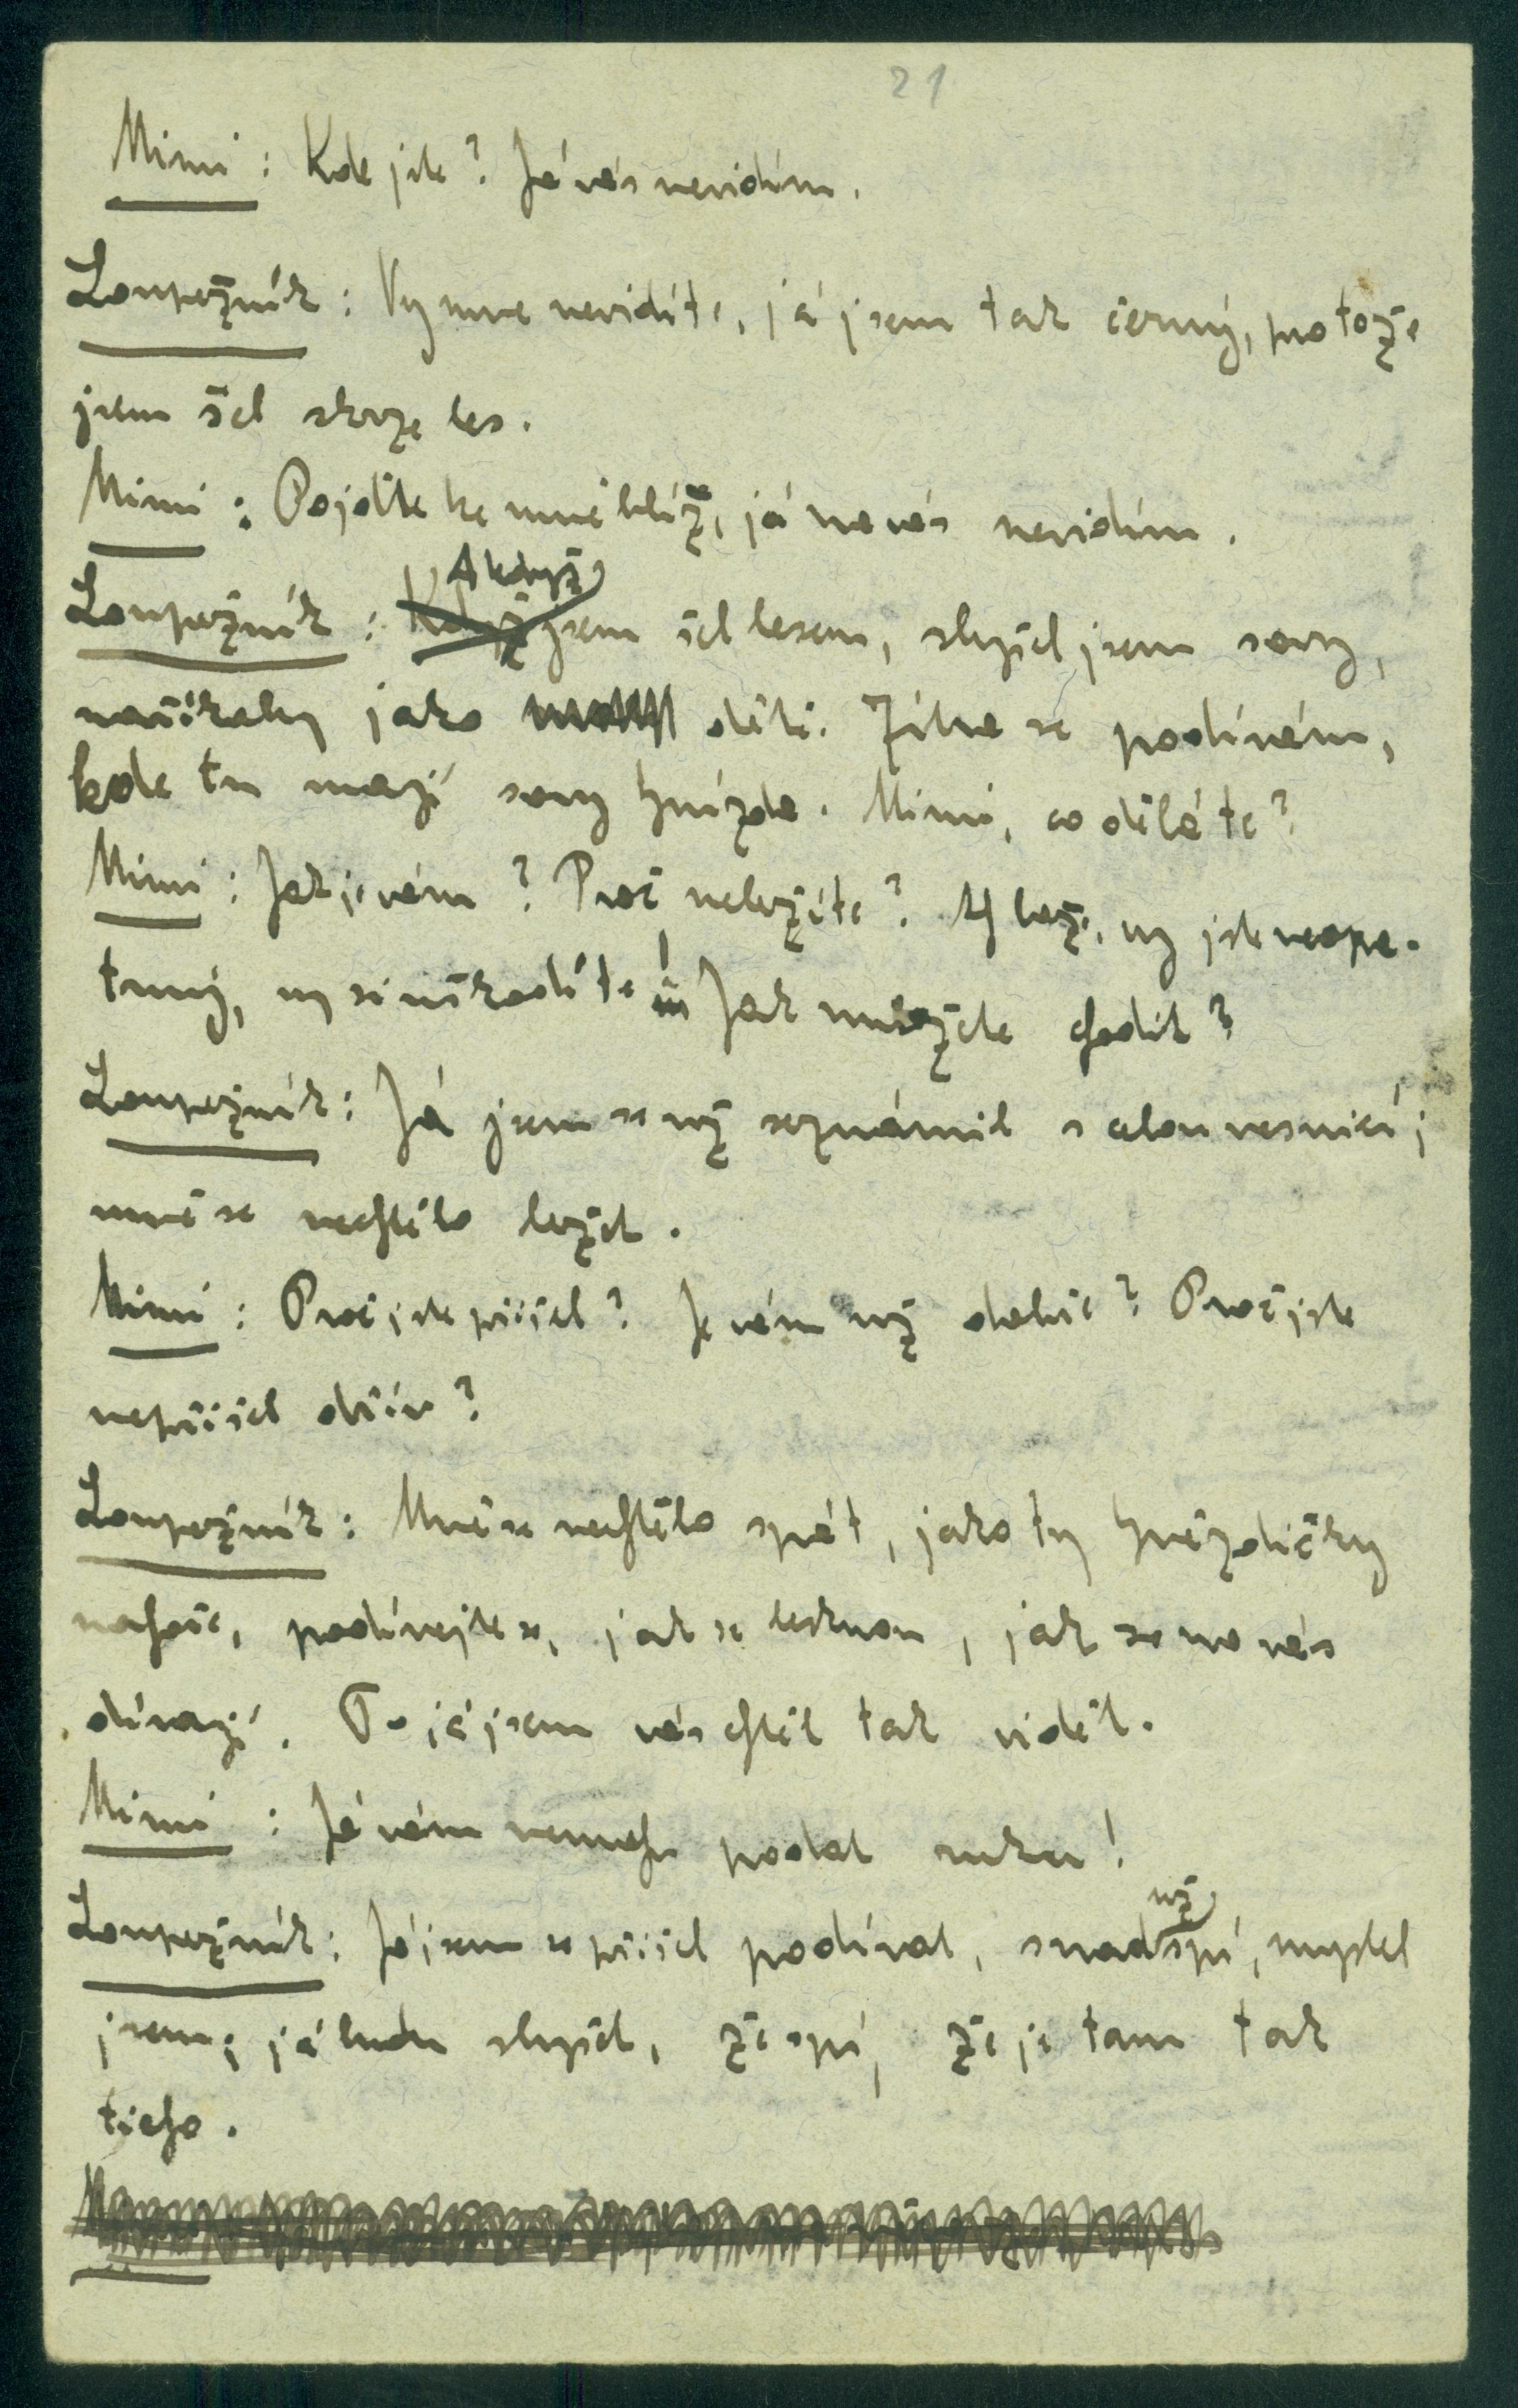 21
Mimi: Kde jste? Já vás nevidím.
Loupežník: Vy mne nevidíte, já jsem tak černý, protože
jsem šel skrze les.
Mimi: Pojďte ke mně blíž, já na vás nevidím.
Loupežník: A když jsem šel lesem, slyšel jsem sovy,
naříkaly jako děti. Zítra se podívám,
kde tu mají sovy hnízda. Mimi, co děláte?
Mimi: Jak je vám? Proč neležíte? Ah bože, vy jste neopa-
trný, vy si uškodíte! Jak můžete chodit?
Loupežník: Já jsem se už seznámil s celou vesnicí;
mně se nechtělo ležet.
Mimi: Proč jste přišel? Je vám už dobře? Proč jste
nepřišel dřív?
Loupežník: Mně se nechtělo spát, jako ty hvězdičky
nahoře, podívejte se, jak se lesknou, jak se na vás
dívají. To já jsem vás chtěl tak vidět.
Mimi: Já vám nemohu podat ruku!
Loupežník: Já jsem se přišel podívat, snad už spí, myslel
jsem; já budu slyšet, že spí, že je tam tak
ticho.